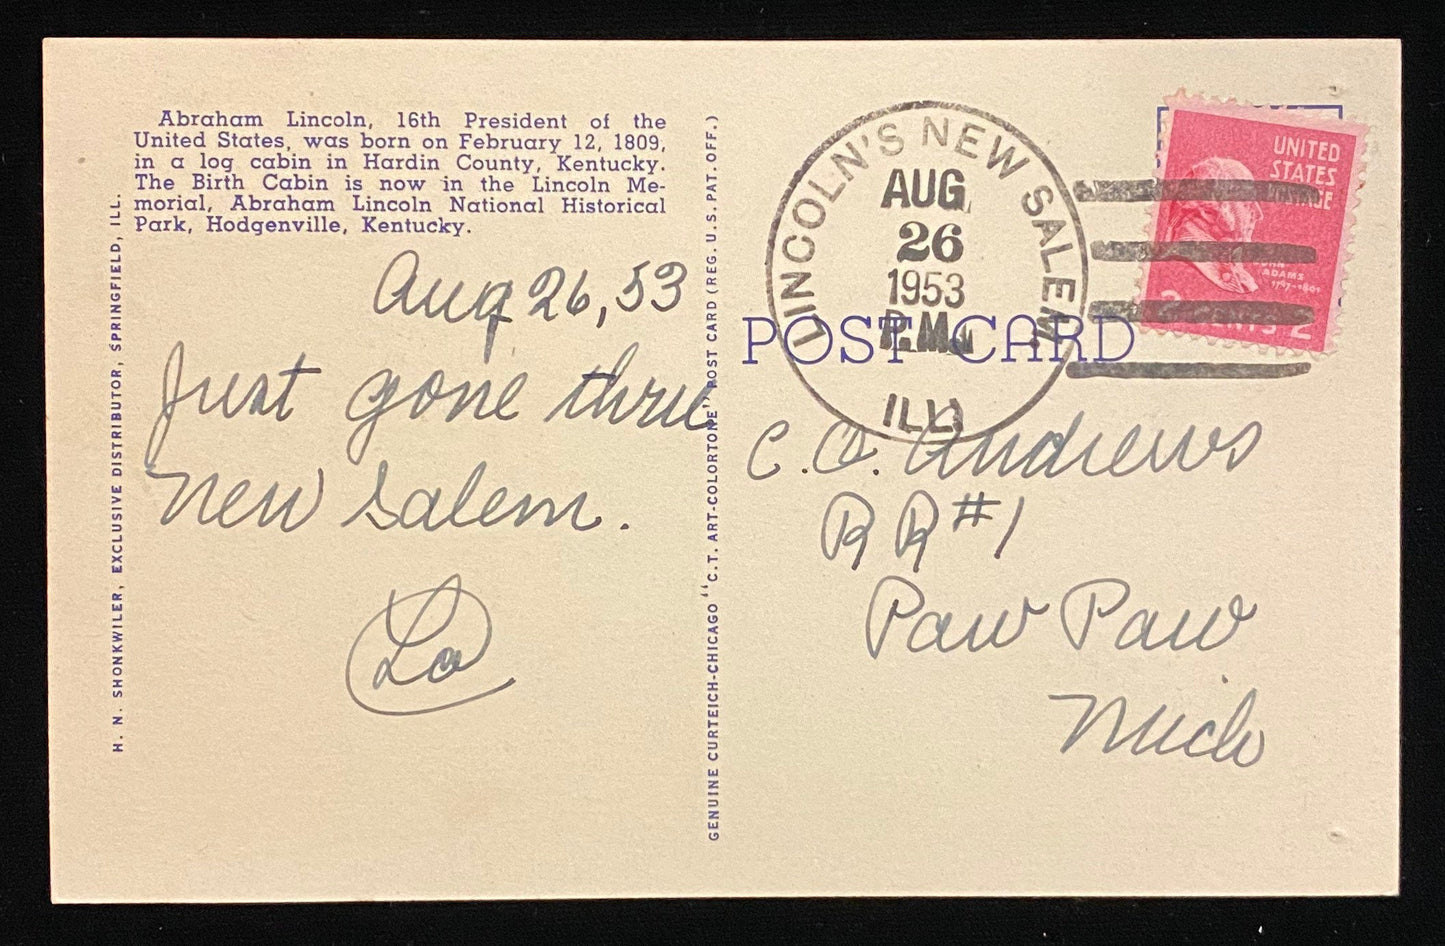 Abraham Lincoln, 16th President of the
United States, was born on February 12, 1809,
in a log cabin in Hardin County, Kentucky.
The Birth Cabin is now in the Lincoln Me-
morial, Abraham Lincoln National Historical
Park, Hodgenville, Kentucky.
H. N. SHONKWILER, EXCLUSIVE DISTRIBUTOR, SPRINGFIELD, ILL.
Aug 26, 53
Just gone thru
New Salem.
La
GENUINE CURTEICH-CHICAGO "C.T. ART-COLORTONE" POST CARD (REG. U.S. PAT. OFF.)
LINCOLN'S NEW SALEM
AUG
26
1953
P.M.
ILL.
UNITED
STATES
POSTAGE
JOHN
ADAMS
1797-1801
2 CENTS 2
POST CARD
C. O. Andrews
RR #1
Paw Paw
Mich